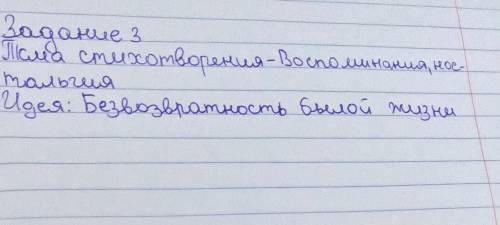 Задание 3
Тема стихотворения-Воспоминания, нос-
тальгия
Идея: Безвозвратность былой жизни